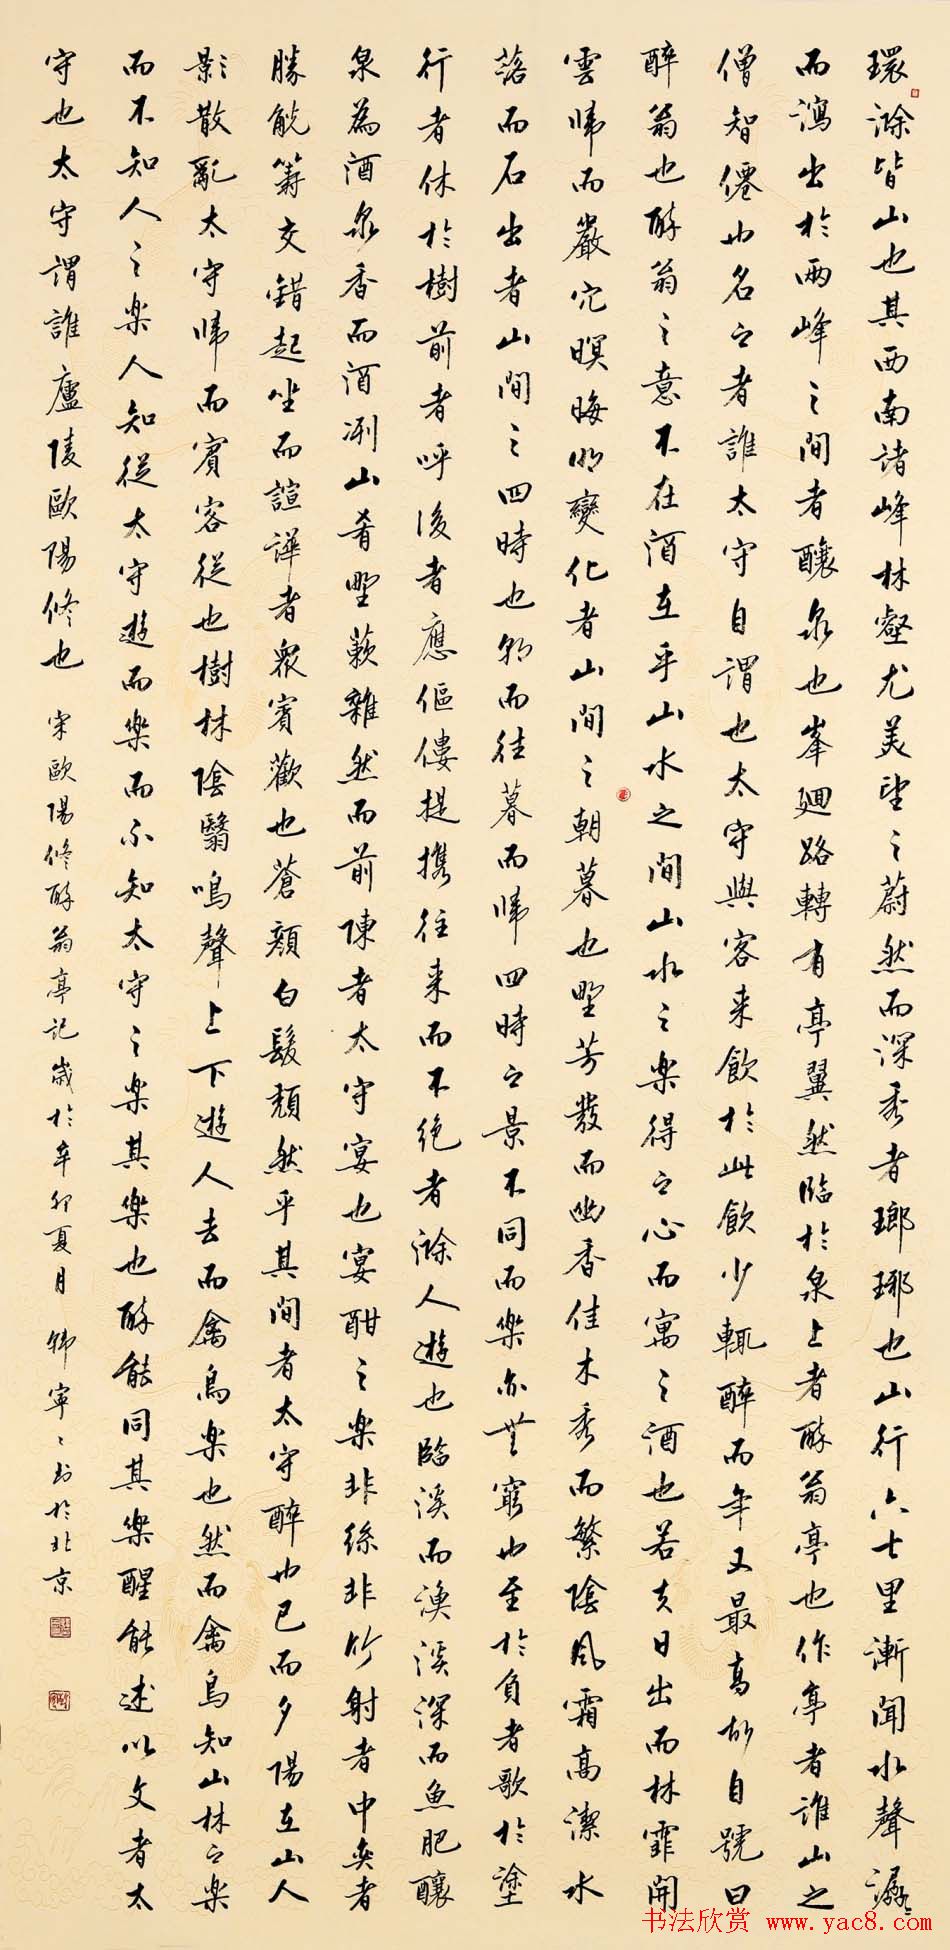 環滁皆山也其西南諸峰林壑尤美望之蔚然而深秀者瑯琊也山行六七里漸聞水聲潺〻
而瀉出於兩峰之間者釀泉也峯廻路轉有亭翼然臨於泉上者醉翁亭也作亭者誰山之
僧智僊也名之者誰太守自謂也太守與客来飲於此飲少輒醉而年又最高故自號曰
醉翁也醉翁之意不在酒在乎山水之間山水之樂得之心而寓之酒也若夫日出而林霏開
雲歸而巖穴暝晦明變化者山間之朝暮也野芳發而幽香佳木秀而繁陰風霜高潔水
落而石出者山間之四時也朝而往暮而歸四時之景不同而樂亦無窮也至於負者歌於塗
行者休於樹前者呼後者應傴僂提携往来而不絶者滁人遊也臨溪而漁溪深而魚肥釀
泉為酒泉香而酒洌山肴野蔌雜然而前陳者太守宴也宴酣之樂非絲非竹射者中奕者
勝觥籌交錯起坐而諠譁者衆賓歡也蒼顏白髮頹然乎其間者太守醉也已而夕陽在山人
影散亂太守歸而賓客從也樹林陰翳鳴聲上下遊人去而禽鳥樂也然而禽鳥知山林之樂
而不知人之樂人知從太守遊而樂而不知太守之樂其樂也醉能同其樂醒能述以文者太
守也太守謂誰廬陵歐陽修也 宋歐陽修醉翁亭記歲於辛卯夏月 韓寧〻書於北京
书法欣赏 www.yac8.com